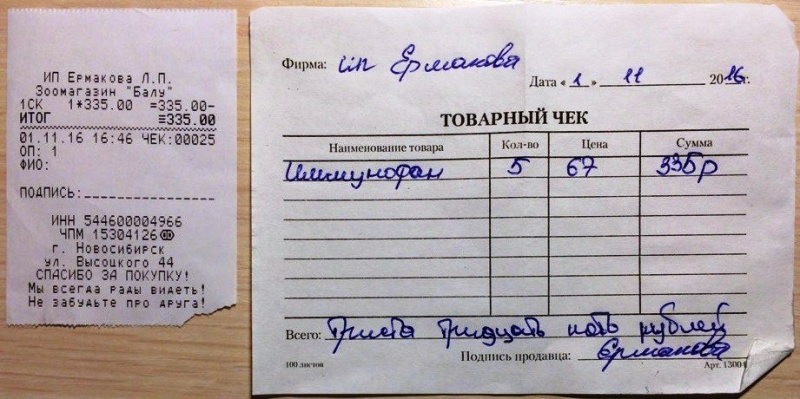 ИП Ермакова Л.П.
Зоомагазин "Балу"
1СК 1*335.00 =335.00-
ИТОГ ≡335.00
01.11.16 16:46 ЧЕК:00025
ОП: 1
ФИО:
ПОДПИСЬ:
ИНН 544600004966
ЧПМ 15304126
г. Новосибирск
ул. Высоцкого 44
СПАСИБО ЗА ПОКУПКУ!
Мы всегда рады видеть!
Не забудьте про друга!
Фирма: ип Ермакова
Дата «1» 11 2016г.
ТОВАРНЫЙ ЧЕК
Наименование товара Кол-во Цена Сумма
Иммунофан 5 67 335р
Всего: Триста тридцать пять рублей
Подпись продавца: Ермакова
100 листов Арт. 13004